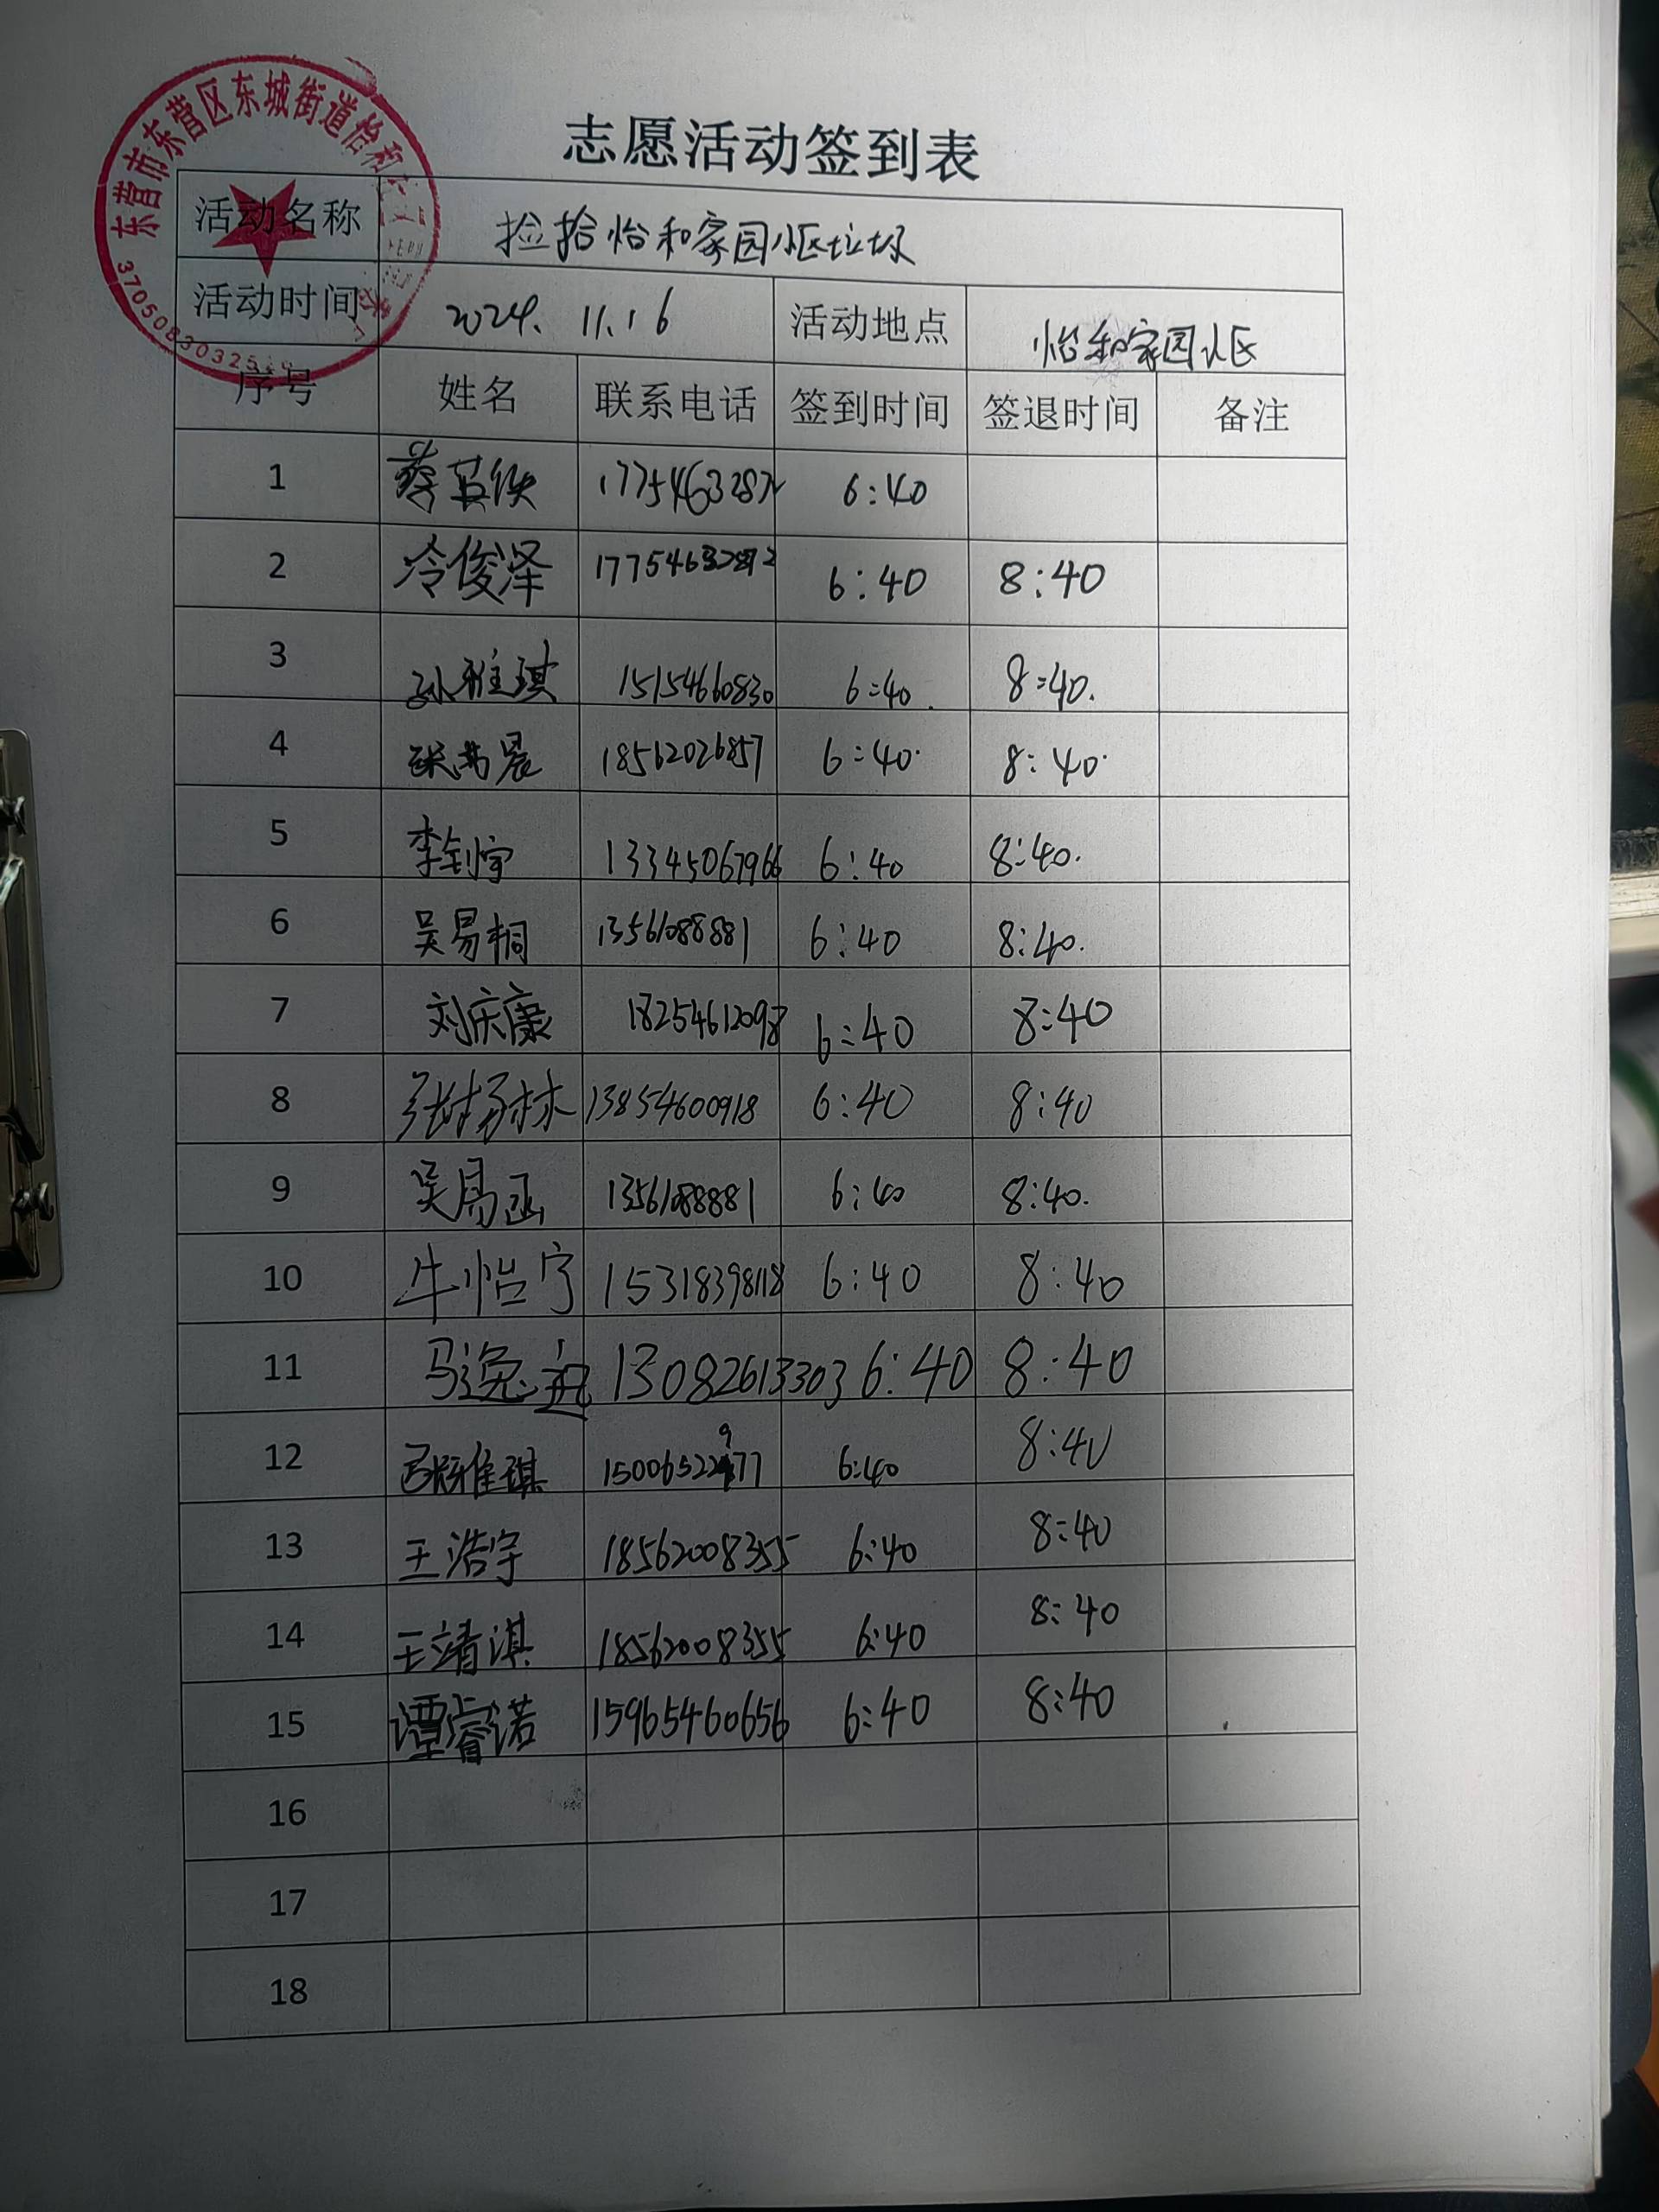 东营市东营区东城街道怡和
3705083032
志愿活动签到表
活动名称 捡拾怡和家园小区垃圾
活动时间 2024.11.16 活动地点 怡和家园小区
序号 姓名 联系电话 签到时间 签退时间 备注
1 蔡英俠 17754632872 6:40
2 冷俊泽 17754632872 6:40 8:40
3 孙雅琪 15154660830 6:40. 8:40.
4 晨 18562026857 6:40. 8:40.
5 李钊宇 13345067966 6:40 8:40.
6 吴易桐 13561088881 6:40 8:40.
7 刘庆康 18254612098 6:40 8:40
8 张杨林 13854600918 6:40 8:40
9 吴易函 13561088881 6:40 8:40.
10 牛怡宁 15318398118 6:40 8:40
11 马逸 13082613303 6:40 8:40
12 雅琪 15006522977 6:40 8:40
13 王浩宇 18562008355 6:40 8:40
14 王靖淇 18562008355 6:40 8:40
15 谭睿诺 15965460656 6:40 8:40
16
17
18